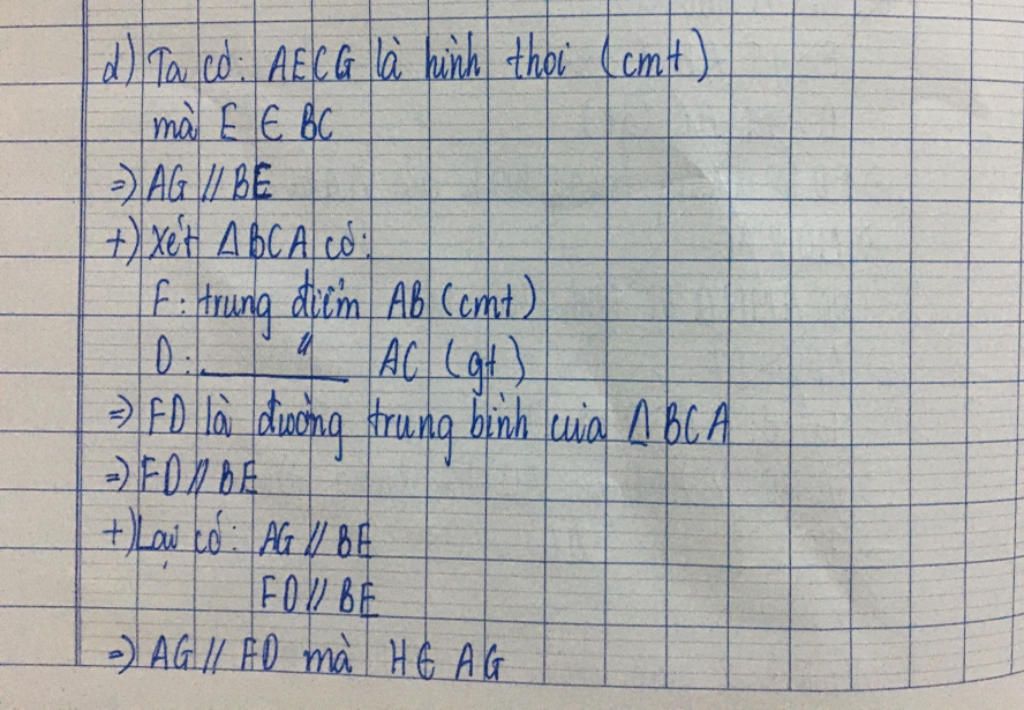 d) Ta có: AECG là hình thoi (cmt)
mà E ∈ BC
=> AG // BE
+) Xét ΔBCA có:
F: trung điểm AB (cmt)
D: ___ " ___ AC (gt)
=> FD là đường trung bình của Δ BCA
=> FD // BE
+) Lại có: AG // BE
FD // BE
=> AG // FD mà H ∈ AG